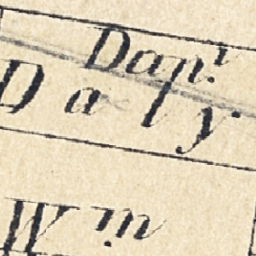 Danl.
Daly.
Wm